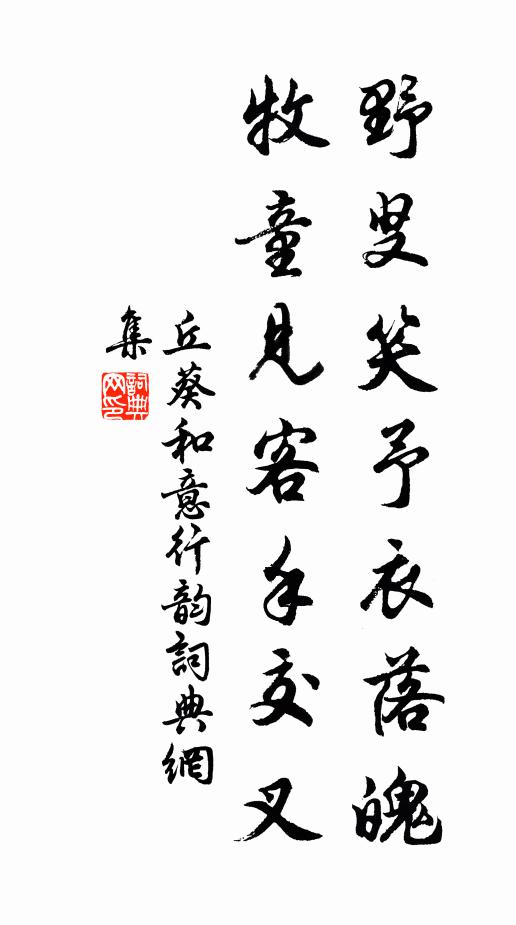 野叟笑予衣落魄
牧童見客手交叉
丘葵和意行韵詞典網
集
詞典网印